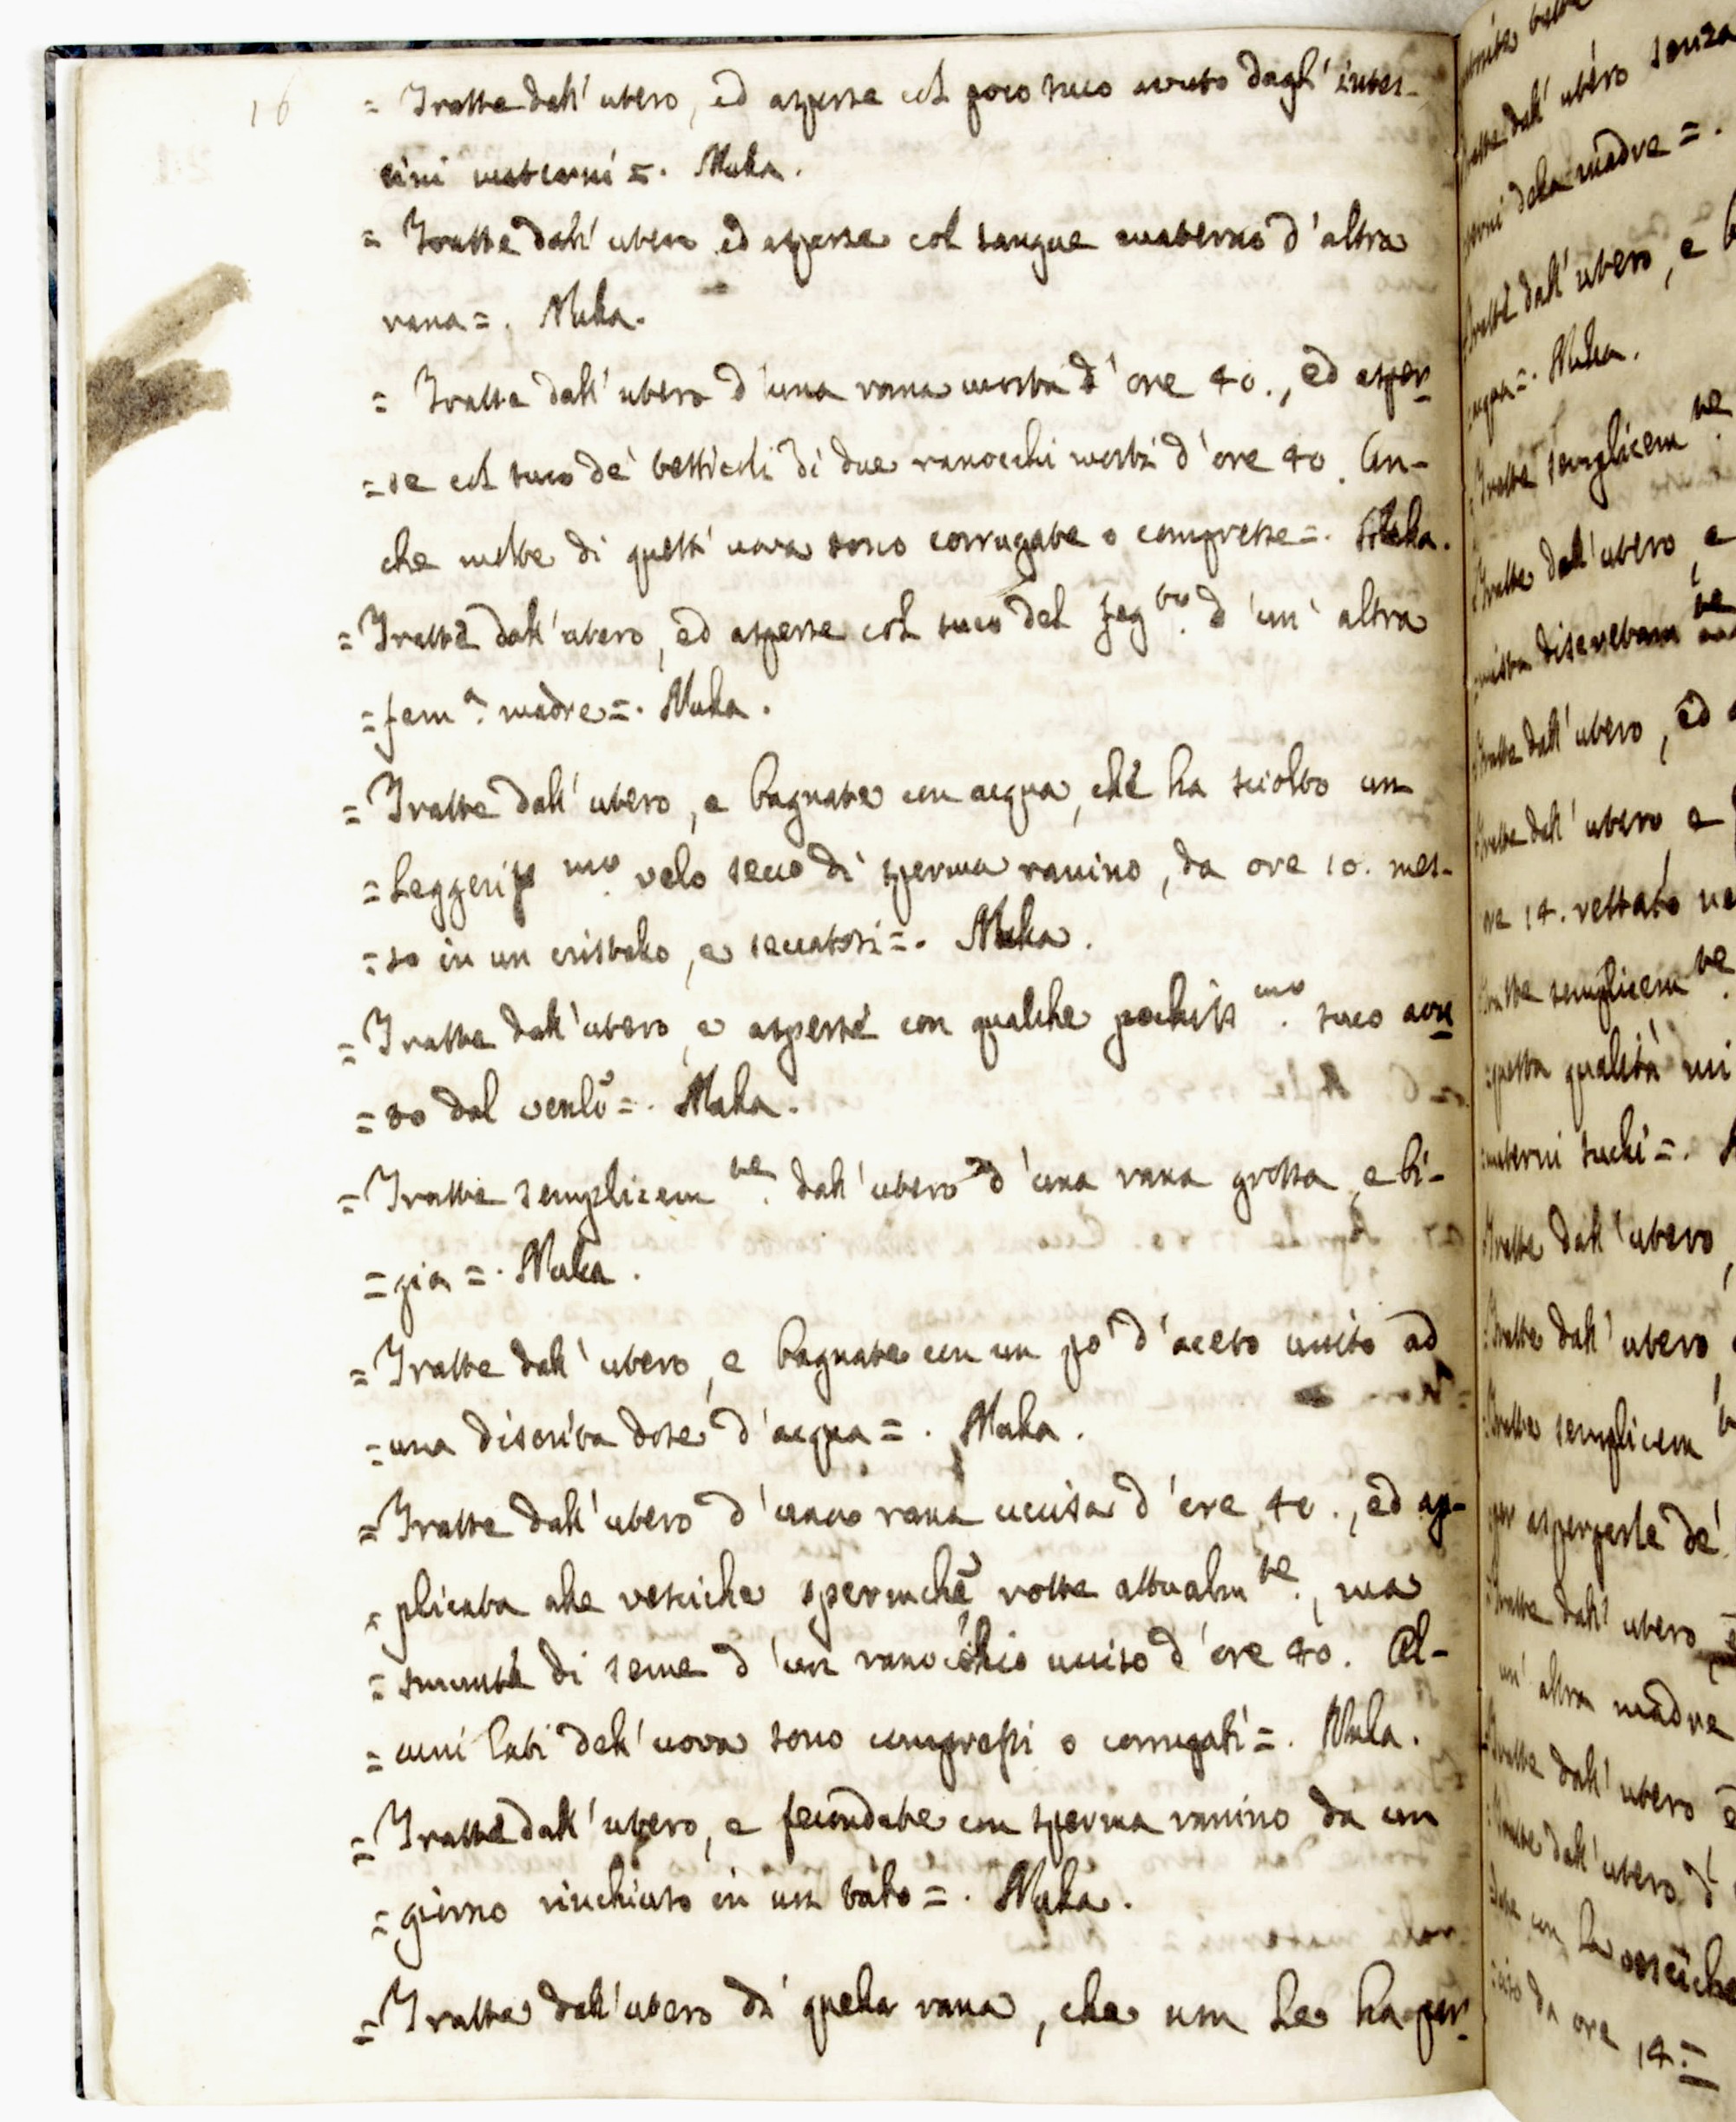 16
= Tratte dall' utero, ed asperse col poco suco avuto dagl' intes-
tini materni =. Nulla.
= Tratte dall' utero ed asperse col sangue materno d' altra
rana =. Nulla.
= Tratte dall' utero d' una rana morta d' ore 40., ed asper
= se col suco de' testicoli di due ranocchi morti d' ore 40. An-
che molte di queste uova sono corrugate o compresse =. Nulla.
= Tratte dall' utero, ed asperse col suco del feg.to d' un' altra
= fem.a madre =. Nulla.
= Tratte dall' utero, e bagnate con acqua, che ha sciolto un
= leggeriss.mo velo secco di sperma ranino, da ore 10. mes-
= so in un cristallo, e seccatosi =. Nulla.
= Tratte dall' utero, e asperse con qualche pochiss.mo suco avu
= to dal =. Nulla.
= Tratte semplicem.te dall' utero d' una rana grossa, e bi-
= gia =. Nulla.
= Tratte dall' utero, e bagnate con un po' d' aceto unito ad
= una discrita dose d' acqua =. Nulla.
= Tratte dall' utero d' una rana uccisa d' ore 40., ed ap-
= plicata alle vesciche rotte attualm.te, ma
= smunte di seme d' un ranocchio ucciso d' ore 40. Al-
= cuni lati dell' uova sono compressi o corrugati =. Nulla.
= Tratte dall' utero, e fecondate con sperma ranino da un
= giorno rinchiuso in un tubo =. Nulla.
= Tratte dall' utero di quella rana, che non le ha par
tratte dall' utero senza
della madre =.
tratte dall' utero, e b
acqua =. Nulla.
Tratte semplicem.te
Tratte dall' utero e
Tratte dall' utero, ed
Tratte dall' utero e
ore 14. restato ne
Tratte semplicem.te
= questa qualità mi
= materni suchi =.
Tratte dall' utero,
Tratte dall' utero,
Tratte semplicem
per aspergerle de'
Tratte dall' utero
un' altra madre
Tratte dall' utero
Tratte dall' utero d'
con la vesciche
da ore 14. =